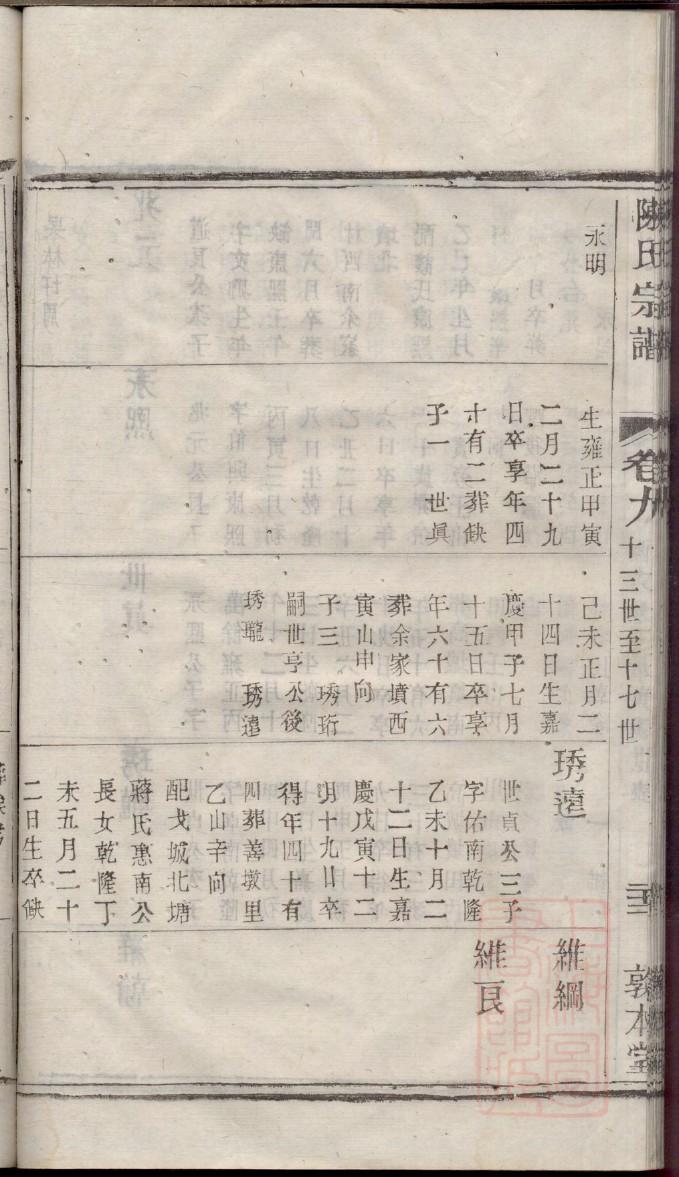 陳氏宗譜
卷九
十三世至十七世
敦本堂
永明
生雍正甲寅
二月二十九
日卒享年四
十有二葬缺
子一　世眞
己未正月二
十四日生嘉
慶甲子七月
十五日卒享
年六十有六
葬余家墳西
寅山申向
子三　琇珩
嗣世亨公後
琇瓏　琇遠
琇遠
世貞公三子
字佑南乾隆
乙未十月二
十二日生嘉
慶戊寅十二
月十九日卒
得年四十有
四葬善墩里
乙山辛向
配戈城北塘
蔣氏惠南公
長女乾隆丁
未五月二十
二日生卒缺
維綱
維良